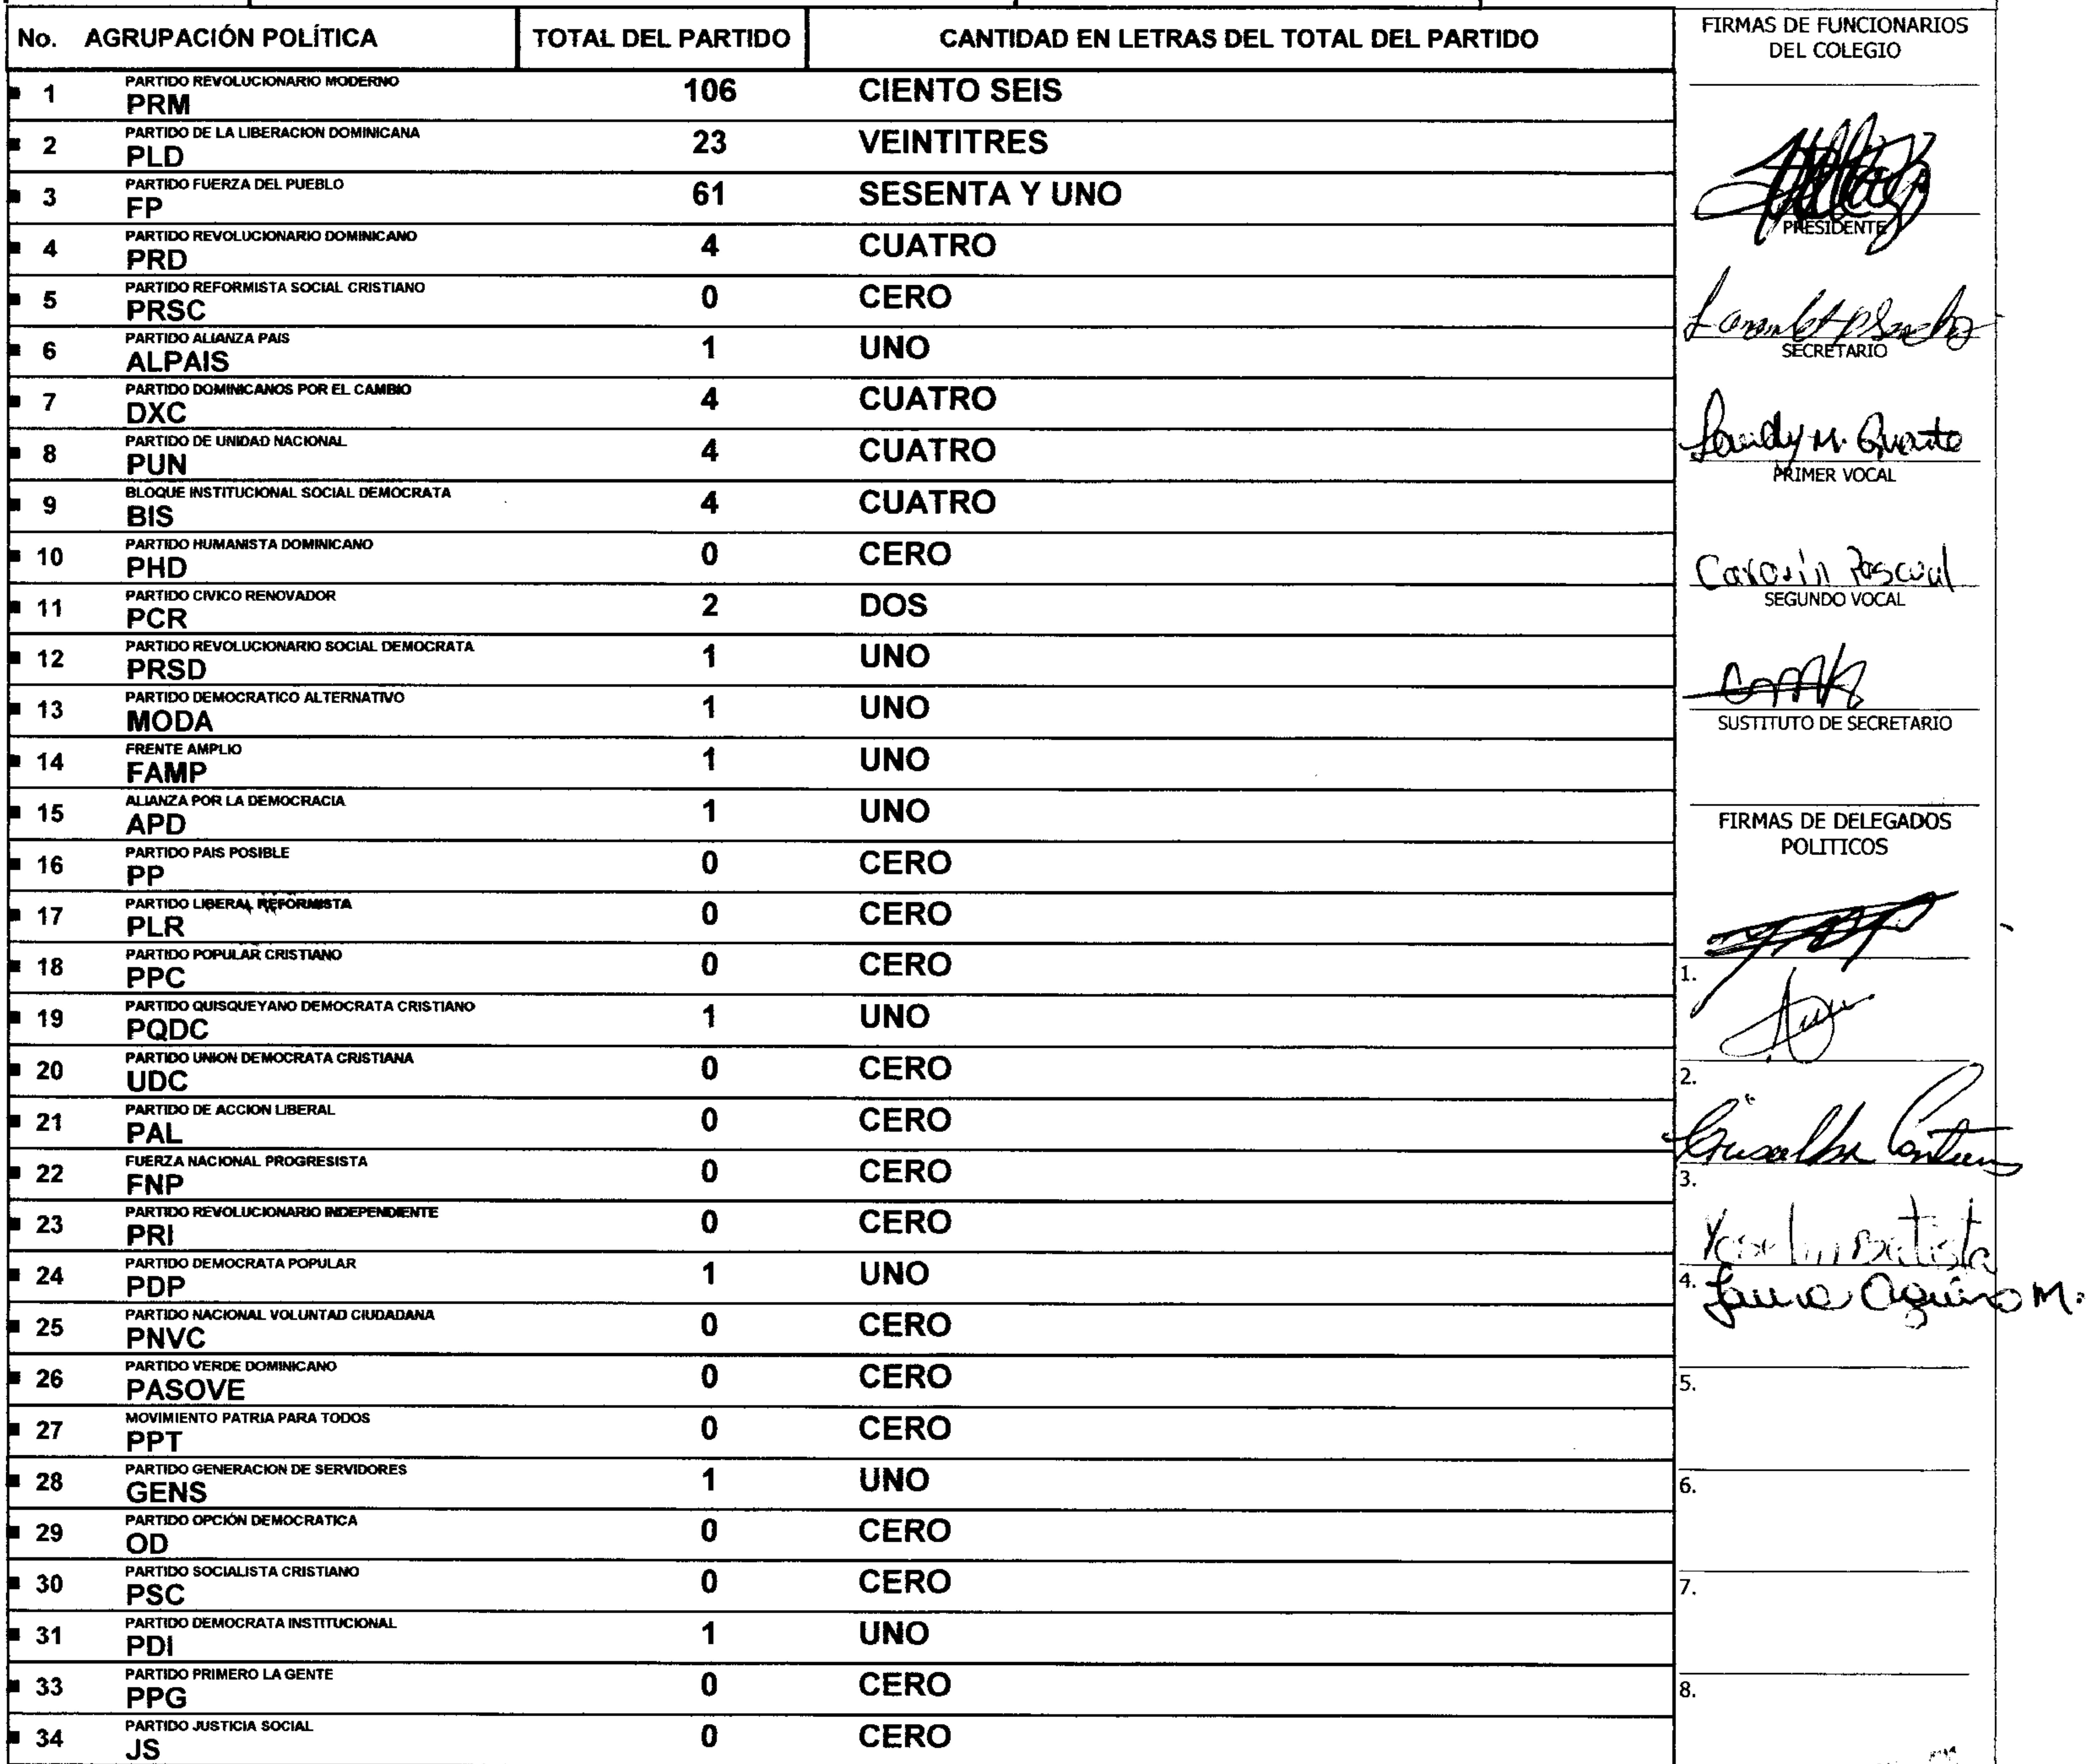 No. AGRUPACIÓN POLÍTICA TOTAL DEL PARTIDO CANTIDAD EN LETRAS DEL TOTAL DEL PARTIDO
PARTIDO REVOLUCIONARIO MODERNO
1 PRM 106 CIENTO SEIS
PARTIDO DE LA LIBERACION DOMINICANA
2 PLD 23 VEINTITRES
PARTIDO FUERZA DEL PUEBLO
3 FP 61 SESENTA Y UNO
PARTIDO REVOLUCIONARIO DOMINICANO
4 PRD 4 CUATRO
PARTIDO REFORMISTA SOCIAL CRISTIANO
5 PRSC 0 CERO
PARTIDO ALIANZA PAIS
6 ALPAIS 1 UNO
PARTIDO DOMINICANOS POR EL CAMBIO
7 DXC 4 CUATRO
PARTIDO DE UNIDAD NACIONAL
8 PUN 4 CUATRO
BLOQUE INSTITUCIONAL SOCIAL DEMOCRATA
9 BIS 4 CUATRO
PARTIDO HUMANISTA DOMINICANO
10 PHD 0 CERO
PARTIDO CIVICO RENOVADOR
11 PCR 2 DOS
PARTIDO REVOLUCIONARIO SOCIAL DEMOCRATA
12 PRSD 1 UNO
PARTIDO DEMOCRATICO ALTERNATIVO
13 MODA 1 UNO
FRENTE AMPLIO
14 FAMP 1 UNO
ALIANZA POR LA DEMOCRACIA
15 APD 1 UNO
PARTIDO PAIS POSIBLE
16 PP 0 CERO
PARTIDO LIBERAL REFORMISTA
17 PLR 0 CERO
PARTIDO POPULAR CRISTIANO
18 PPC 0 CERO
PARTIDO QUISQUEYANO DEMOCRATA CRISTIANO
19 PQDC 1 UNO
PARTIDO UNION DEMOCRATA CRISTIANA
20 UDC 0 CERO
PARTIDO DE ACCION LIBERAL
21 PAL 0 CERO
FUERZA NACIONAL PROGRESISTA
22 FNP 0 CERO
PARTIDO REVOLUCIONARIO INDEPENDIENTE
23 PRI 0 CERO
PARTIDO DEMOCRATA POPULAR
24 PDP 1 UNO
PARTIDO NACIONAL VOLUNTAD CIUDADANA
25 PNVC 0 CERO
PARTIDO VERDE DOMINICANO
26 PASOVE 0 CERO
MOVIMIENTO PATRIA PARA TODOS
27 PPT 0 CERO
PARTIDO GENERACION DE SERVIDORES
28 GENS 1 UNO
PARTIDO OPCIÓN DEMOCRATICA
29 OD 0 CERO
PARTIDO SOCIALISTA CRISTIANO
30 PSC 0 CERO
PARTIDO DEMOCRATA INSTITUCIONAL
31 PDI 1 UNO
PARTIDO PRIMERO LA GENTE
33 PPG 0 CERO
PARTIDO JUSTICIA SOCIAL
34 JS 0 CERO
FIRMAS DE FUNCIONARIOS
DEL COLEGIO
PRESIDENTE
SECRETARIO
PRIMER VOCAL
Pascual
SEGUNDO VOCAL
SUSTITUTO DE SECRETARIO
FIRMAS DE DELEGADOS
POLITICOS
1.
2.
3.
Batista
4.
M.
5.
6.
7.
8.